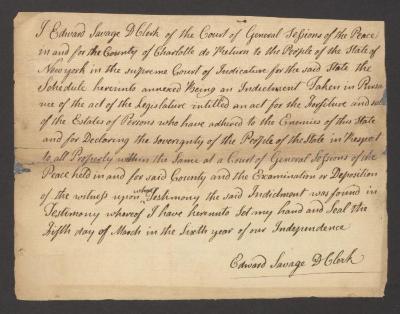 I Edward Savage D Clerk of the Court of General Sessions of the Peace
in and for the County of Charlotte do Return to the People of the State of
New york in the supreme Court of Judicature for the said State the
Schedule hereunto annexed Being an Indictment Taken in Pursu
ance of the act of the Legislature intitled an act for the Forfiture and sale
of the Estates of Persons who have adhered to the Enemies of this State
and for Declaring the Sovereignty of the People of the State in Respect
to all Property within the Same at a Court of General Sessions of the
Peace held in and for said County and the Examination or Deposition
of the witness upon whose Testimony the said Indictment was found in
Testimony whereof I have hereunto Set my hand and Seal the
Fifth day of March in the Sixth year of our Independence
Edward Savage D Clerk